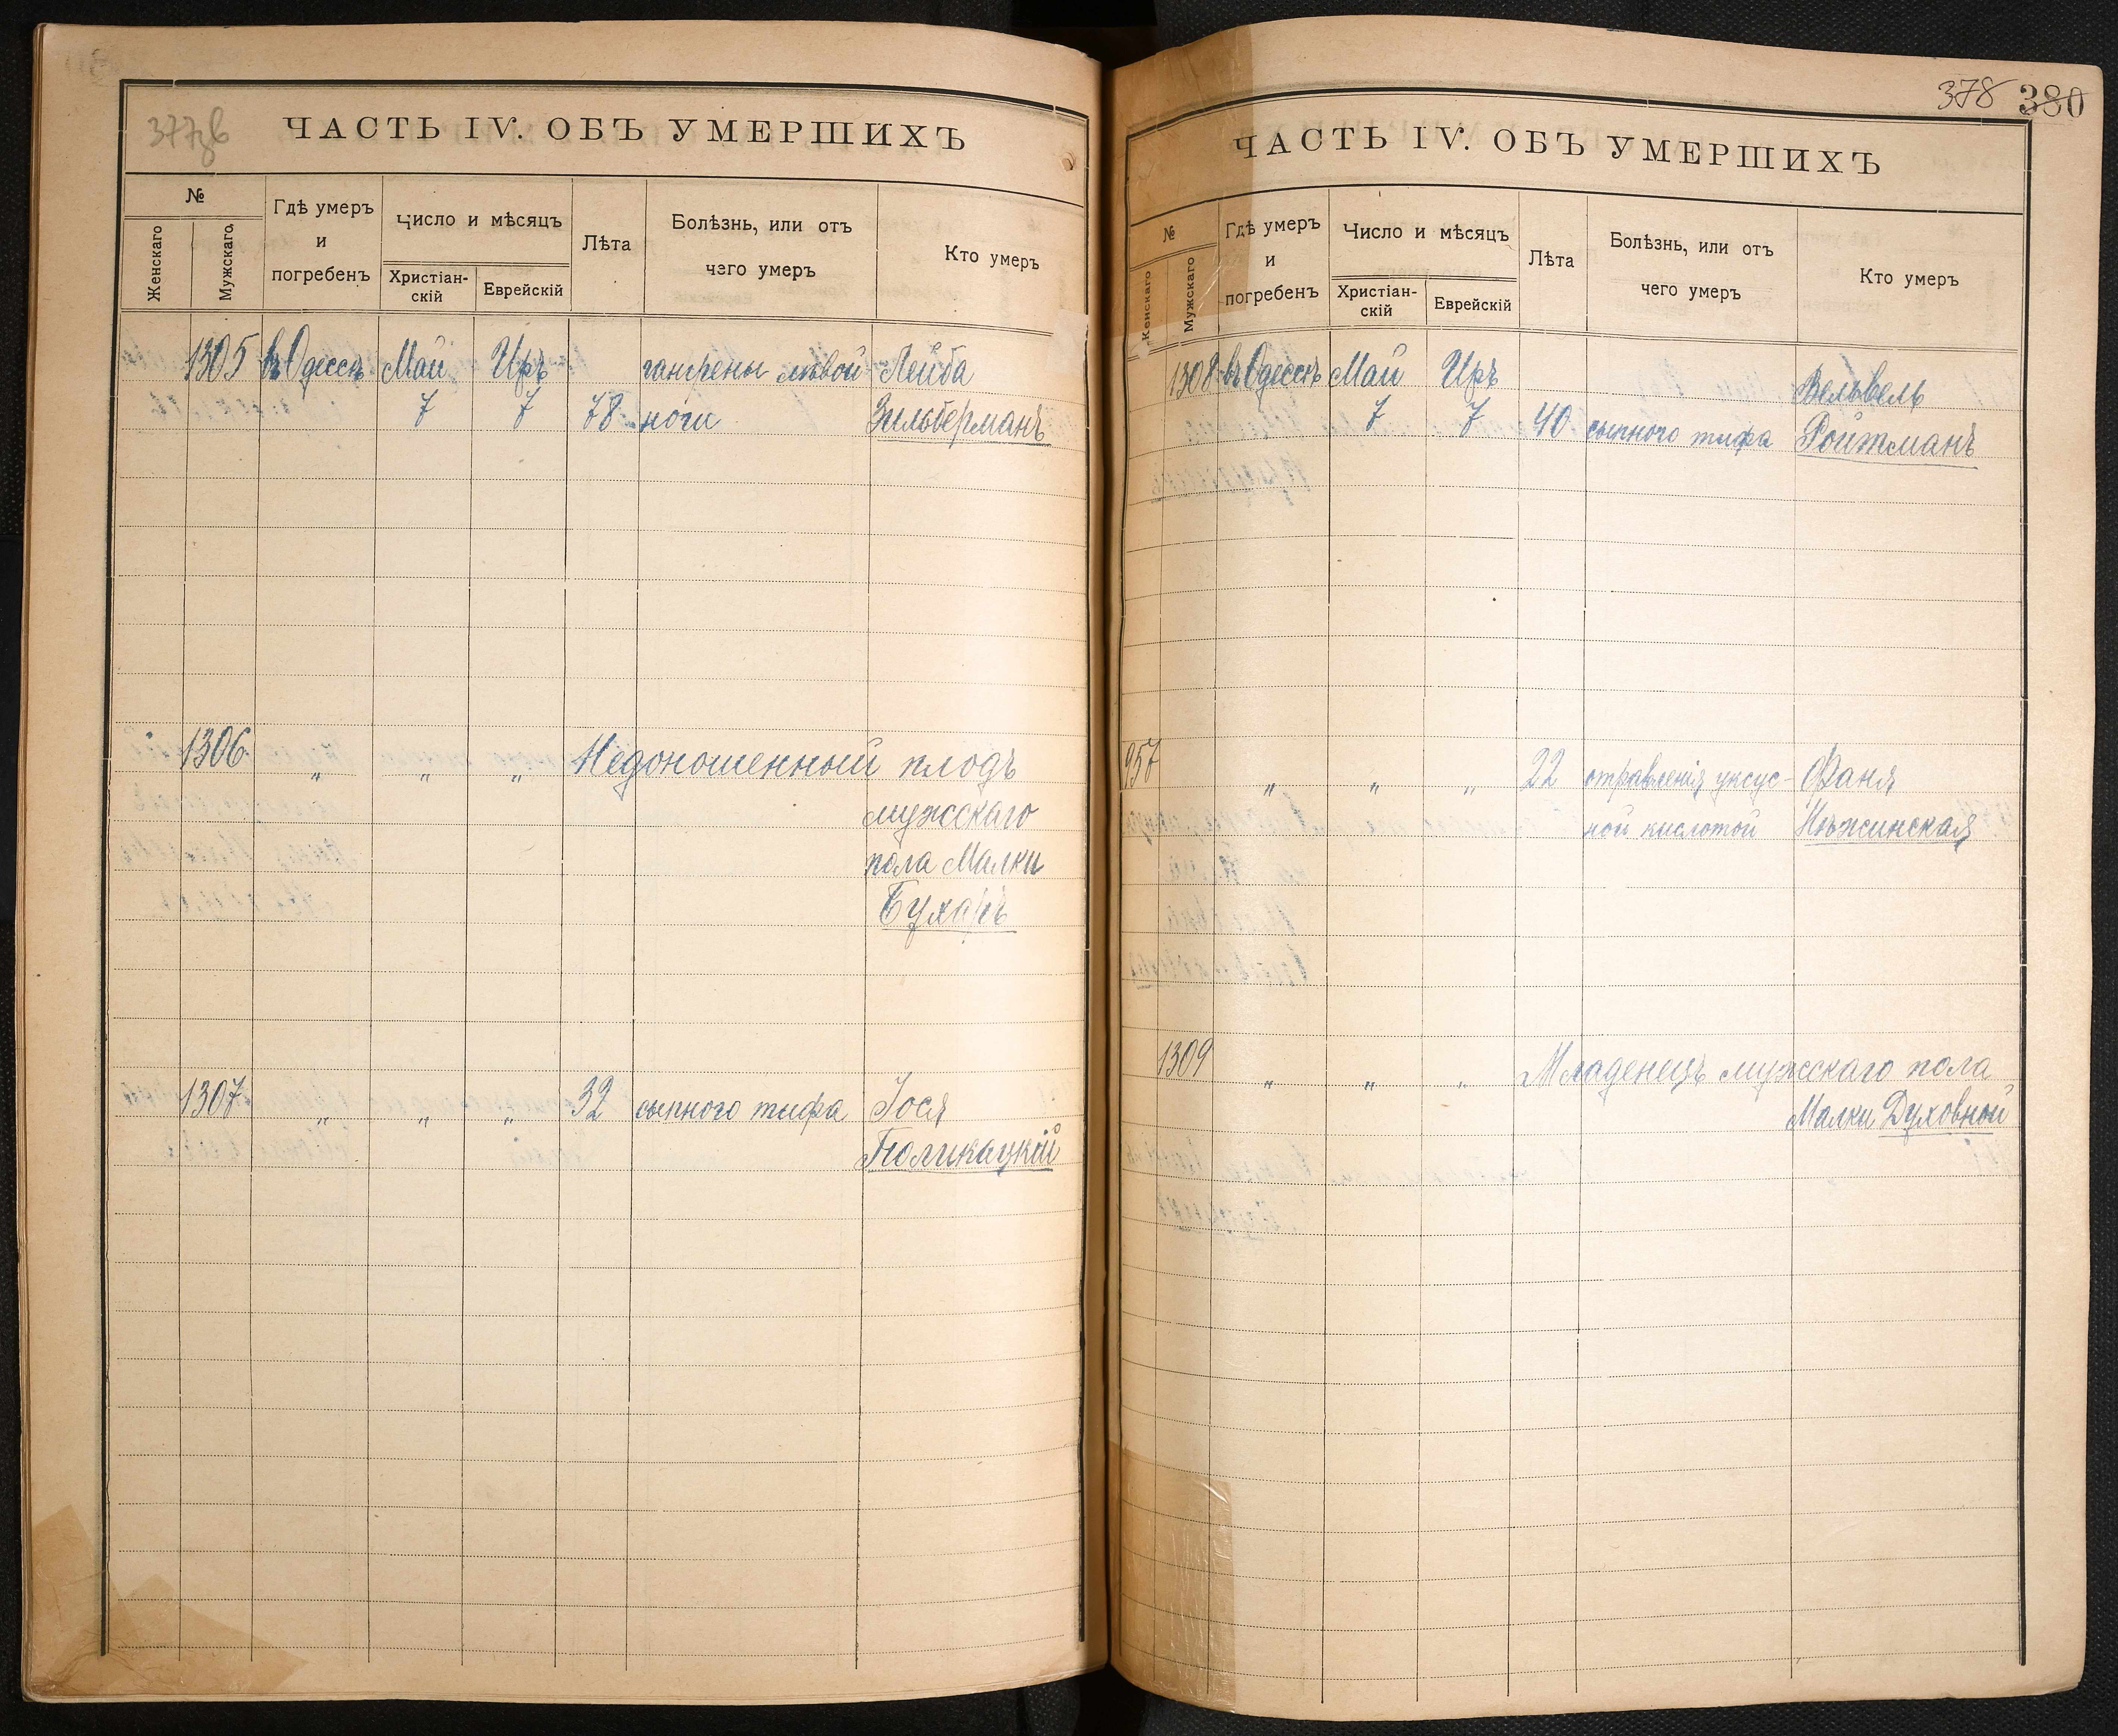 377зв
ЧАСТЬ IV. ОБЪ УМЕРШИХЪ
№
Женскаго
Мужскаго
Гдѣ умеръ
и
погребенъ
Число и мѣсяцъ
Христіан-
скій
Еврейскій
Лѣта
Болѣзнь, или отъ
чего умеръ
Кто умеръ
1305 въ Одессѣ Май Иръ гангрены лѣвой Лейба
7 7 78 ноги Зильберманъ
1306 " " " Недоношенный плодъ
мужскаго
пола Малки
Бухаръ
1307 " " " 32 сыпного тифа Іося
Поликацкій
378 380
ЧАСТЬ IV. ОБЪ УМЕРШИХЪ
№
Женскаго
Мужскаго
Гдѣ умеръ
и
погребенъ
Число и мѣсяцъ
Христіан-
скій
Еврейскій
Лѣта
Болѣзнь, или отъ
чего умеръ
Кто умеръ
1308 въ Одессѣ Май Иръ Вельвель
7 7 40 сыпного тифа Ройтманъ
957 " " " 22 отравленія уксус- Фаня
ной кислотой Нѣжинская
1309 " " " Младенецъ мужскаго пола
Малки Духовной